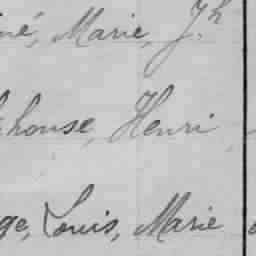 né, Marie, J.h
house, Henri
ge, Louis, Marie